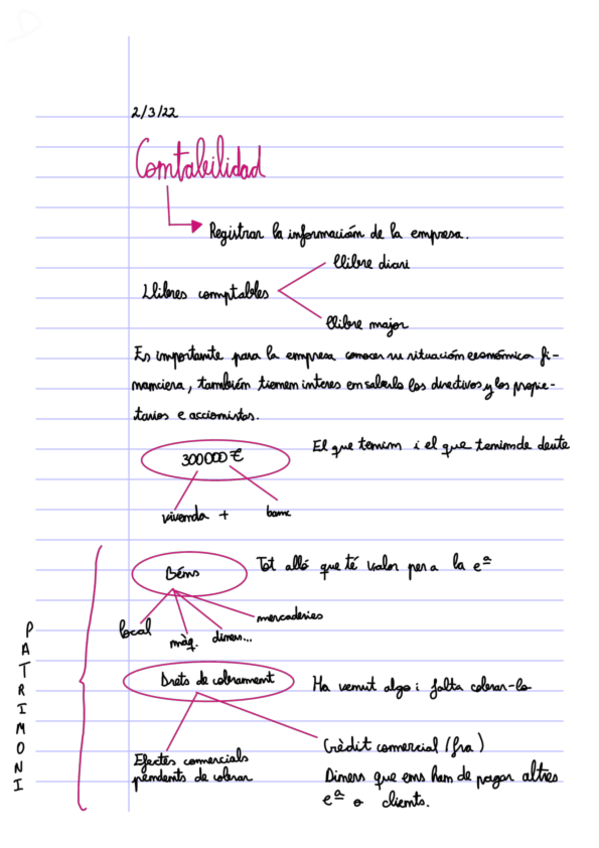 2/3/22
Contabilidad
Registrar la información de la empresa.
llibre diari
Llibres comptables
llibre major
Es importante para la empresa conocer su situación económica fi-
nanciera, también tienen interes en saberlo los directivos y los propie-
tarios e accionistas.
El que tenim i el que tenim de deute
300000 €
vivenda + banc
Béns
Tot allò que té valor per a la eª
local
màq.
diners...
mercaderies
PATRIMONI
Drets de cobrament
Ha venut algo i falta cobrar-lo
Efectes comercials
pendents de cobrar
Crèdit comercial (fra)
Diners que ens han de pagar altres
eª o clients.